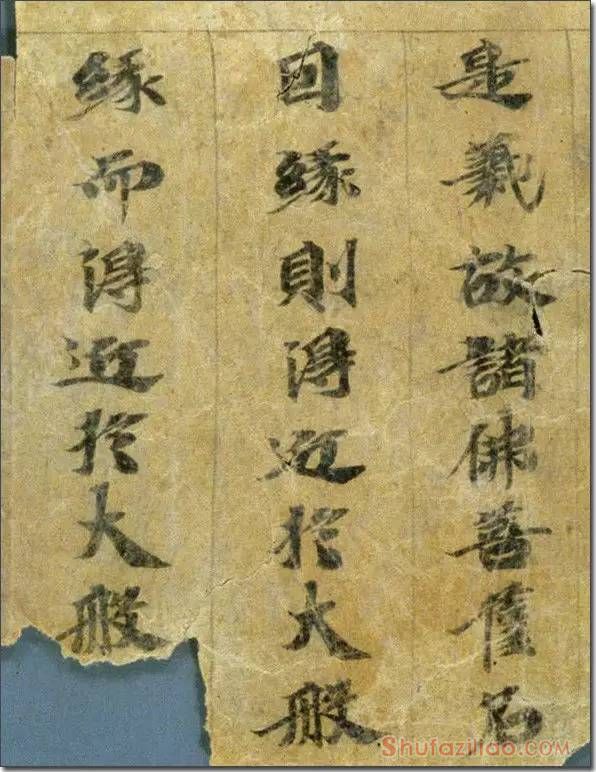 是義故諸佛菩薩名
因緣則得近於大般
緣而得近於大般
Shufaziliao.com